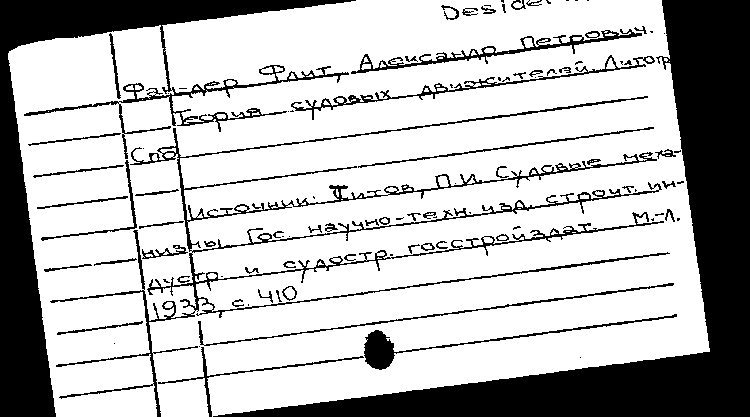 Фан-дер Флит, Александр Петрович.
Теория судовых движителей. Литогр
Спб
Источник: Титов, П.И. Судовые меха-
низмы. Гос. научно-техн. изд. строит. ин-
дустр. и судостр. госстройздат. М.-Л.
1933, с. 410